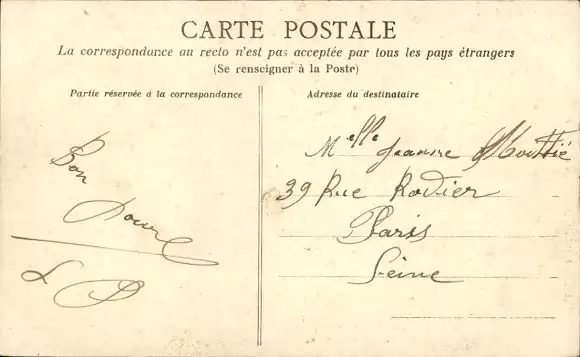 CARTE POSTALE
La correspondance au recto n'est pas acceptée par tous les pays étrangers
(Se renseigner à la Poste)
Partie réservée à la correspondance
Bon
L
Adresse du destinataire
Melle Jeanne
39 Rue Rodier
Paris
Seine